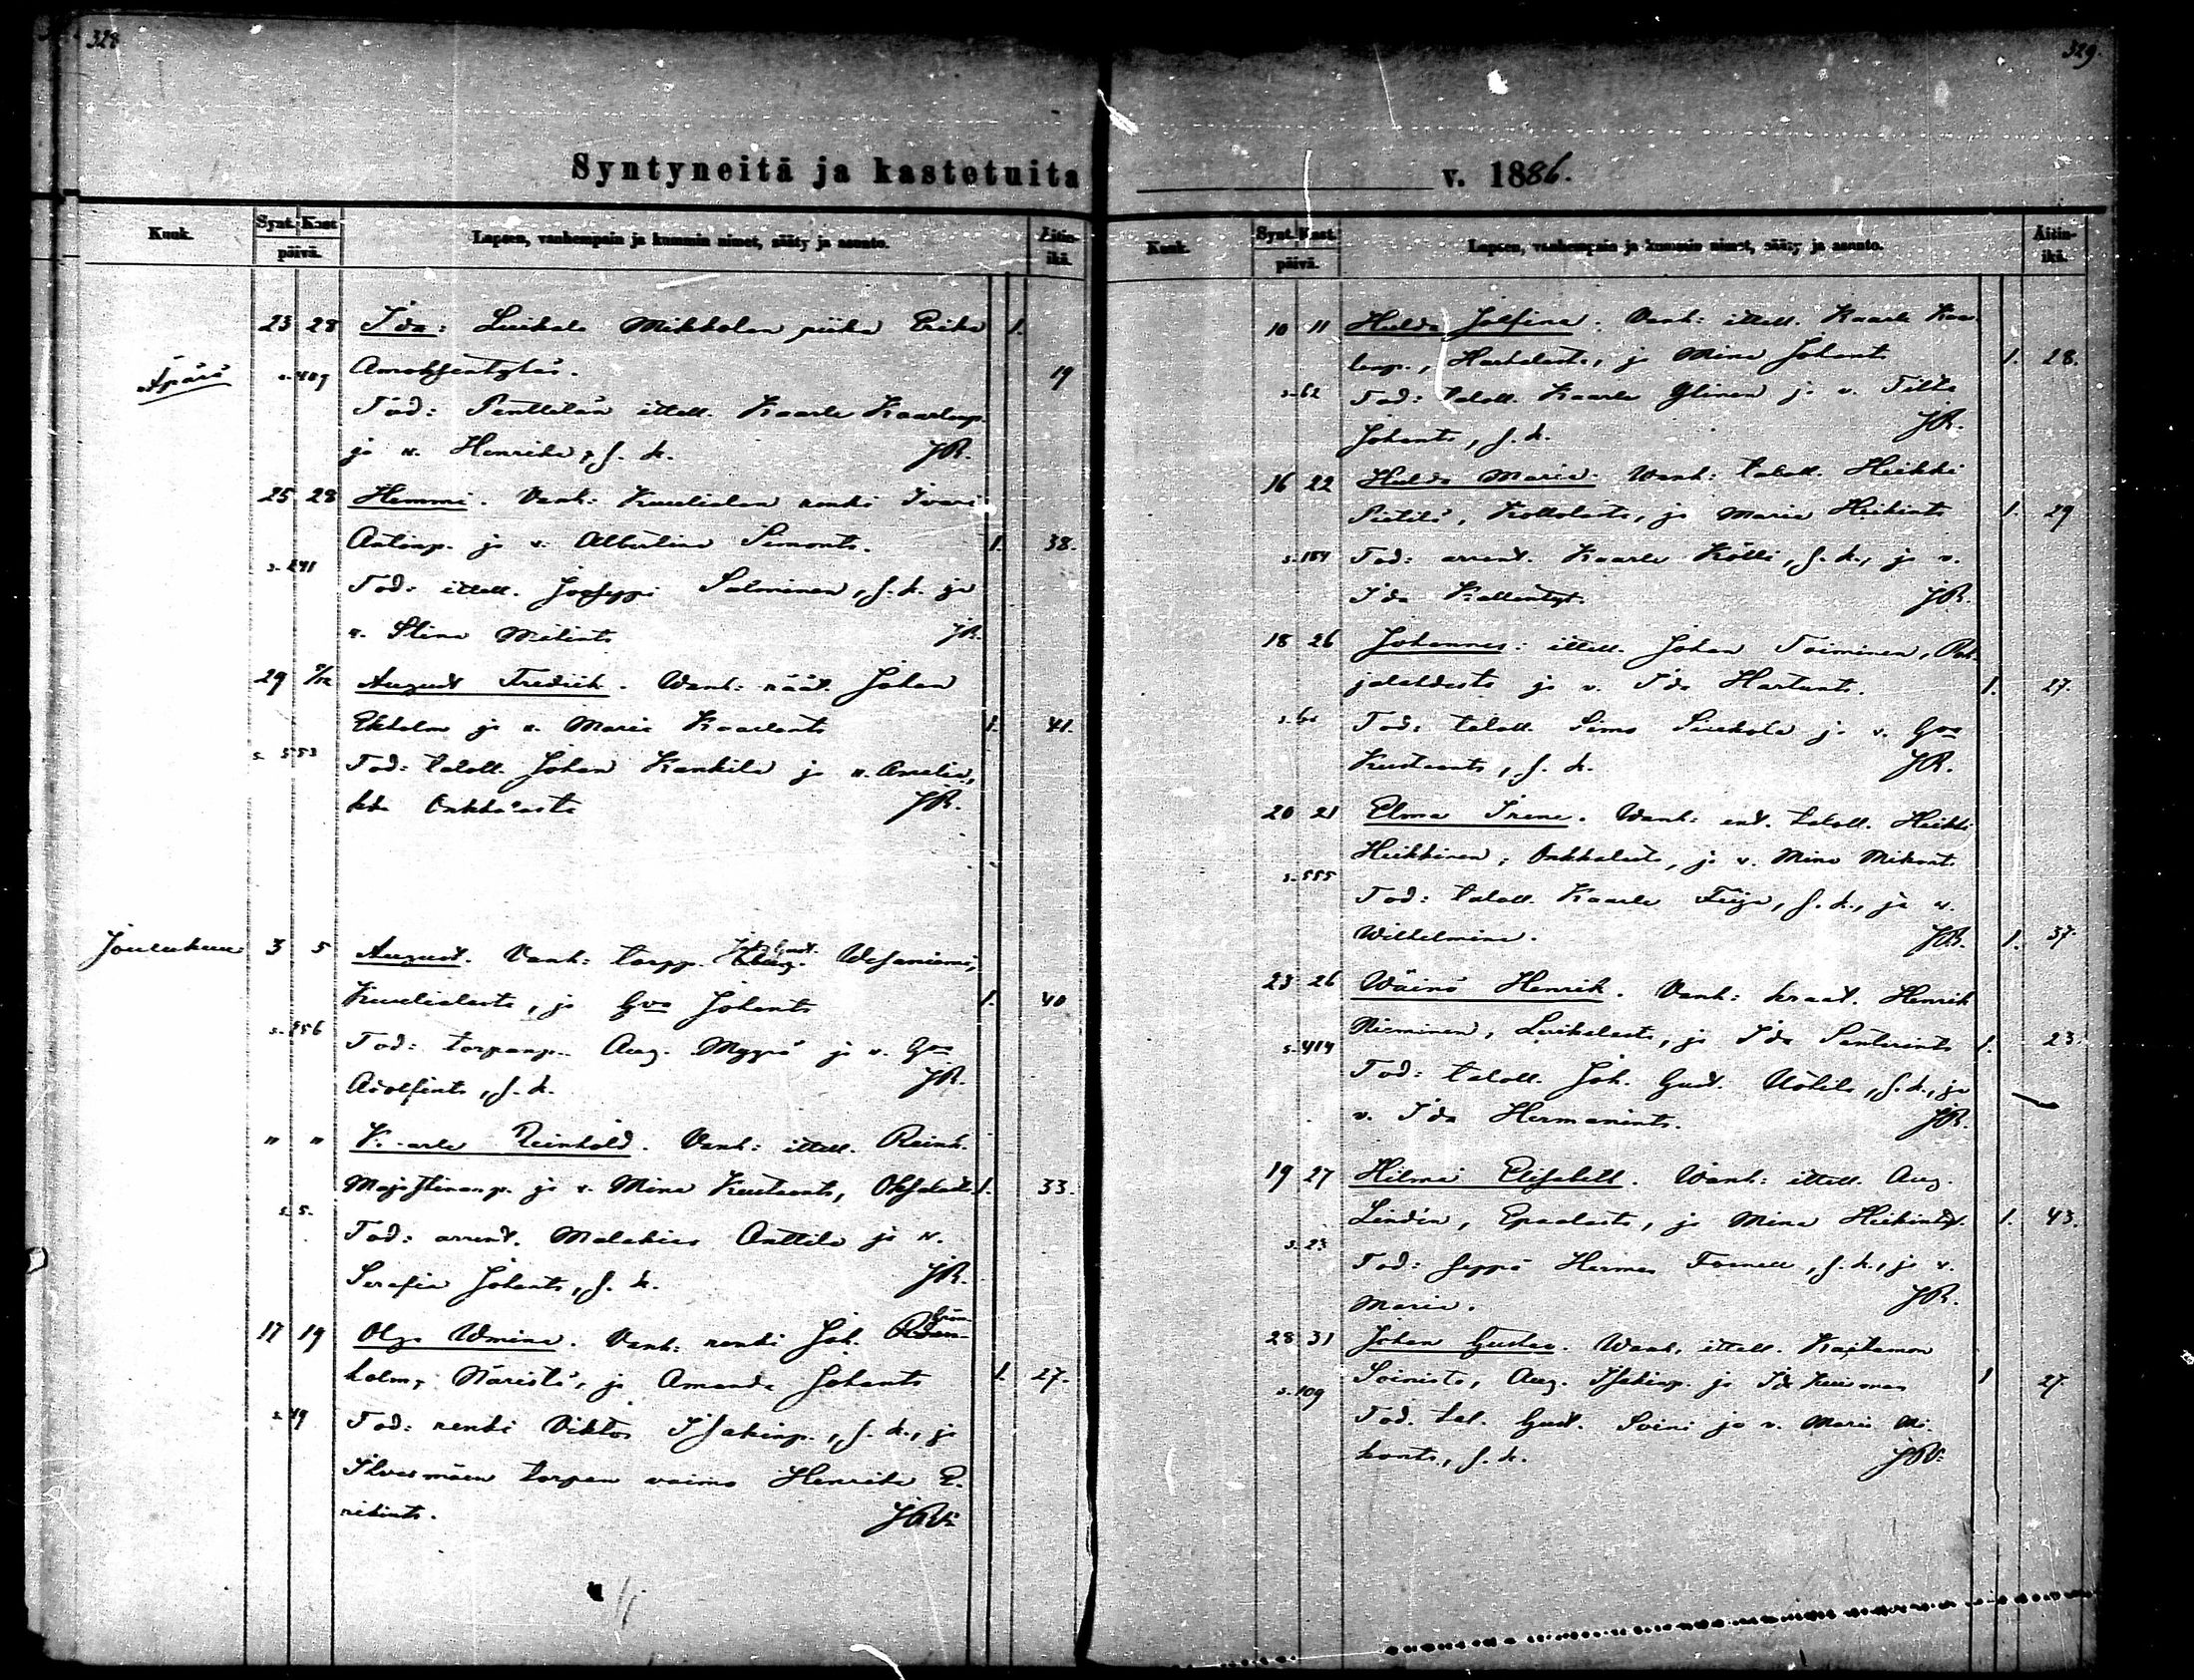 328
Syntyneitä ja kastetuita
Kuuk.
Synt. Kast.
päivä.
Lapsen, vanhempain ja kummin nimet, sääty ja asunto.
Äitin-
ikä.
23 28 Ida: Luikala Mikkolan piika Erika 1.
Äpärä
s. 409 19
Tod: Penttilän ittell. Kaarle Kaarlenp.
ja v. Henrika, s. k. JR.
25 28 Hemmi. Vanh: Kuulialan renki Ivari
Antinp. ja v. Albertina Simont. 1. 38.
s. 241
Tod: ittell. Jooseppi Salminen, s. k. ja
v. Stina Matint. JR.
29 5/12 August Fredrik. Wanh: räät. Johan
Ekholm ja v. Maria Kaarlent. 1. 41.
s. 553
Tod: taloll. Johan Kankila ja v. Amalia,
Onkkaasta JR.
Joulukuu 3 5 August. Vanh: torpp. Joh. Gust. Wesaniemi,
Kuulialasta, ja Eva Johant. 1. 40
s. 256
Tod: torpanp. Aug. Myyrä ja v. Eva
Adolfint., s. k. JR.
" " Kaarle Reinhold. Vanh: ittell. Reinh.
Majastinanp. ja v. Mina Kustaant., 1. 33.
s. 5.
Tod: arrent. Malakias Anttila ja v.
Serafia Johant., s. k. JR.
17 19 Olga Wmina. Vanh: renki Joh. Grön-
holm, Näristä, ja Amanda Johant. 1. 27.
s. 19
Tod: renki Viktor Isakinp., s. k., ja
Ilvesmäen torpan vaimo Henrika E-
rikint. JR
329.
v. 1886.
Kuuk.
Synt. Kast.
päivä.
Lapsen, vanhempain ja kummin nimet, sääty ja asunto.
Äitin-
ikä.
10 11 Hulda Josefina. Vanh: ittell. Kaarle Kaar-
lenp., ja Mina Johant. 1. 28.
s. 62
Tod: taloll. Kaarle Ylinen ja v. Tilta
Johant., s. k. JR.
16 22 Hulda Maria. Wanh: taloll. Heikki
Pietilä, Kollolasta, ja Maria Heikint. 1. 29
s. 184
Tod: arrent. Kaarle Kölli, s. k., ja v.
Ida Kallentyt. JR.
18 26 Johannes: ittell. Johan Toiminen, Poh-
jalahdesta ja v. Ida Hartunt. 1. 27.
Tod: taloll. Simo Siukola ja v. Eva
Kustaant., s. k. JR.
20 21 Elma Irene. Wanh: ent. taloll. Heikki
Heikkinen, Onkkalasta, ja v. Mina Mikont.
s. 555
Tod: taloll. Kaarle Feija, s. k., ja v.
Wilhelmina. JR. 1. 37.
23 26 Wäinö Henrik. Vanh: kraat. Henrik
Nieminen, Luikalasta, ja Ida Santerint. 1. 23.
s. 414
Tod: taloll. Joh. Gust. Uotila, s. k., ja
v. Ida Hermanint. JR.
19 27 Hilma Elisabett. Wanh: ittell. Aug.
Lindén, Epaalasta, ja Mina Heikint. 1. 43.
s. 23
Tod: seppä Herman Fornell, s. k., ja v.
Maria. JR.
28 31 Johan Gustav. Wanh. ittell. Kajtamon
Soinista, Aug. Isakinp. ja Ida 1 27.
s. 109
Tod. tal. Gust. Soini ja v. Maria Mi-
kont., s. k. JR